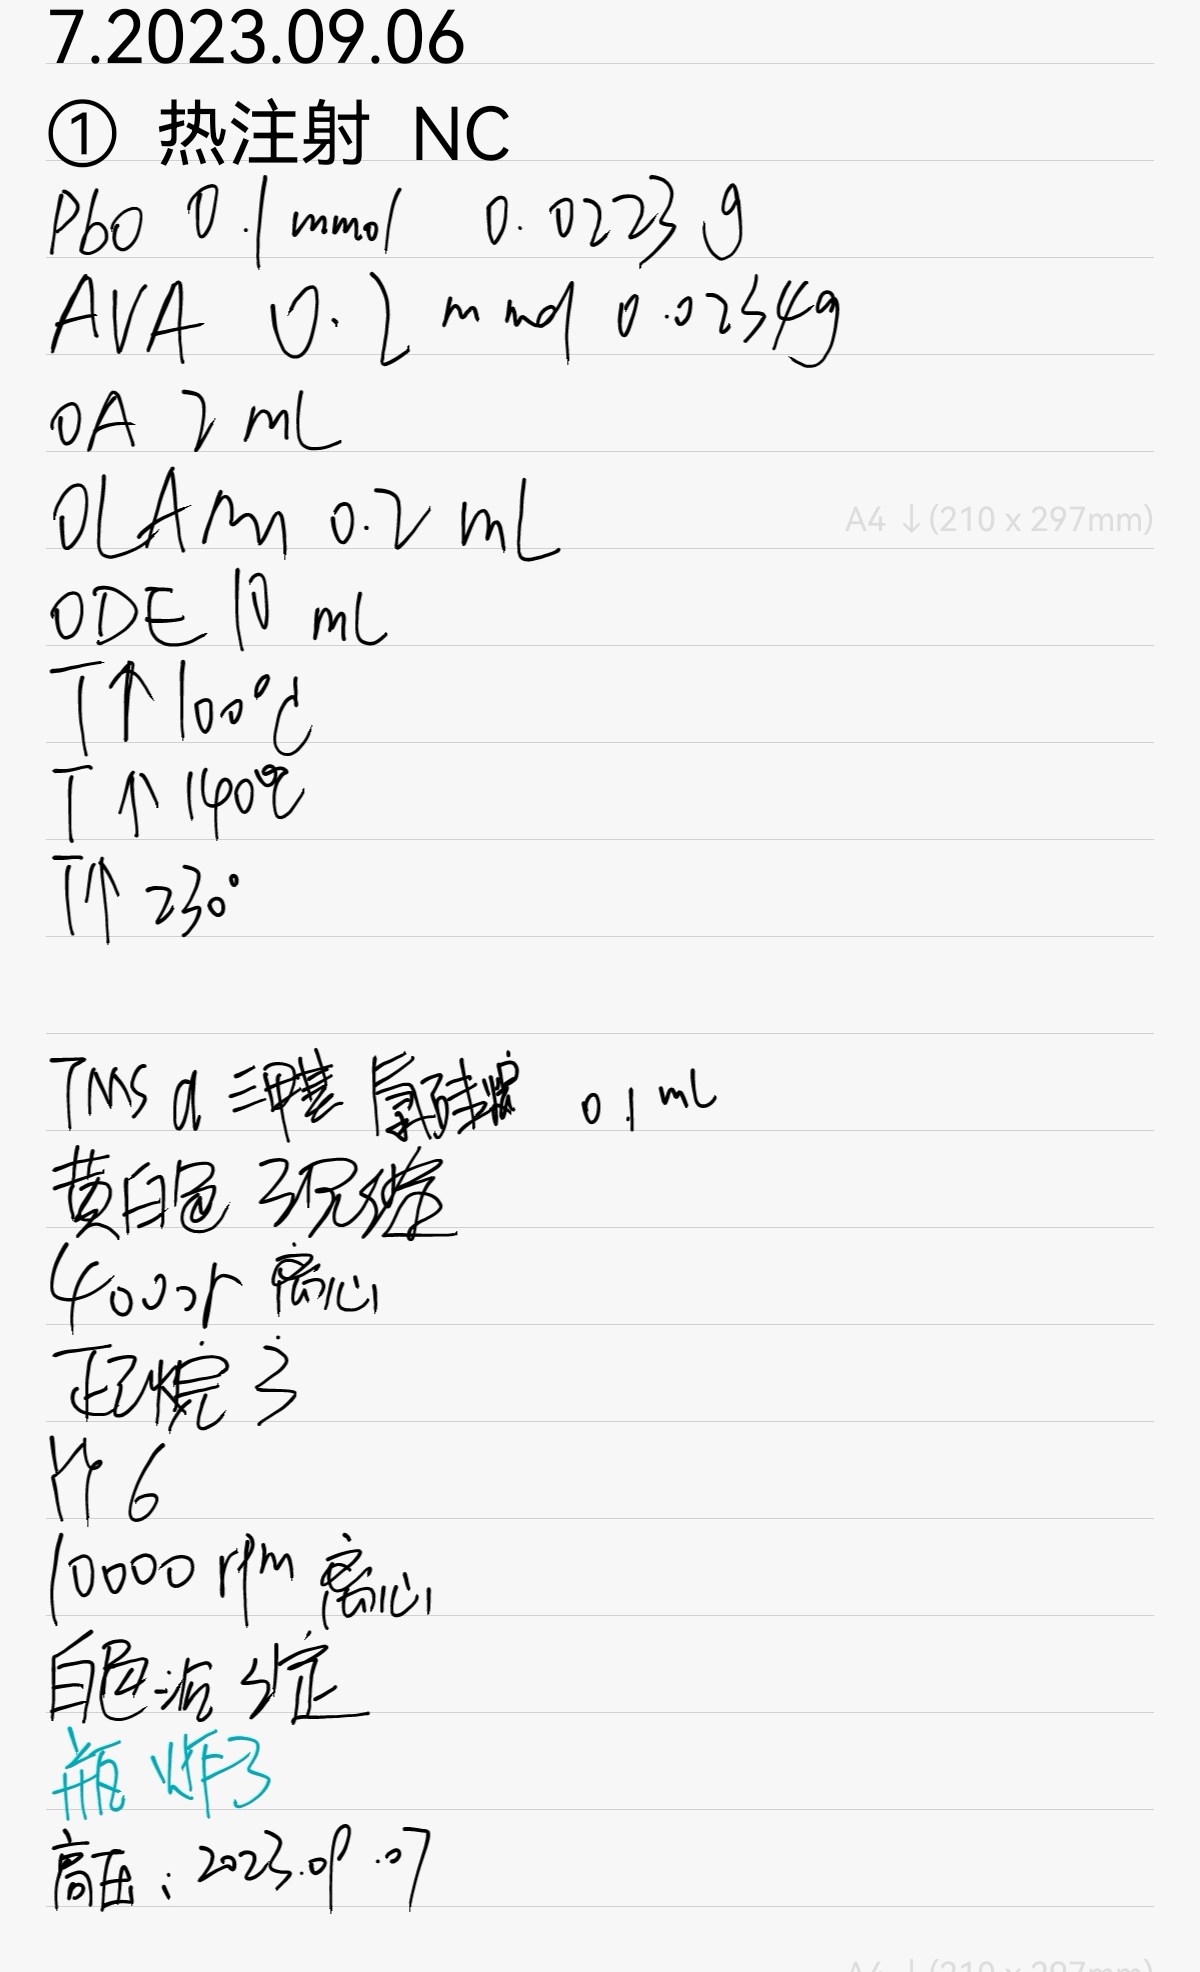 7.2023.09.06
① 热注射 NC
PbO 0.1 mmol 0.0223 g
AVA 0.2 mmol 0.0234g
OA 2 mL
OLAm 0.2 mL
A4 ↓(210 x 297mm)
ODE 10 mL
T↑ 100℃
T↑ 140℃
T↑ 230°
TMS 三甲基 硅 0.1 mL
黄白色 沉淀
4000r 离心
正己烷 3
6
10000 rpm 离心
白色沉淀
瓶炸了
高压: 2023.09.07
A4 ↓(210 x 297mm)